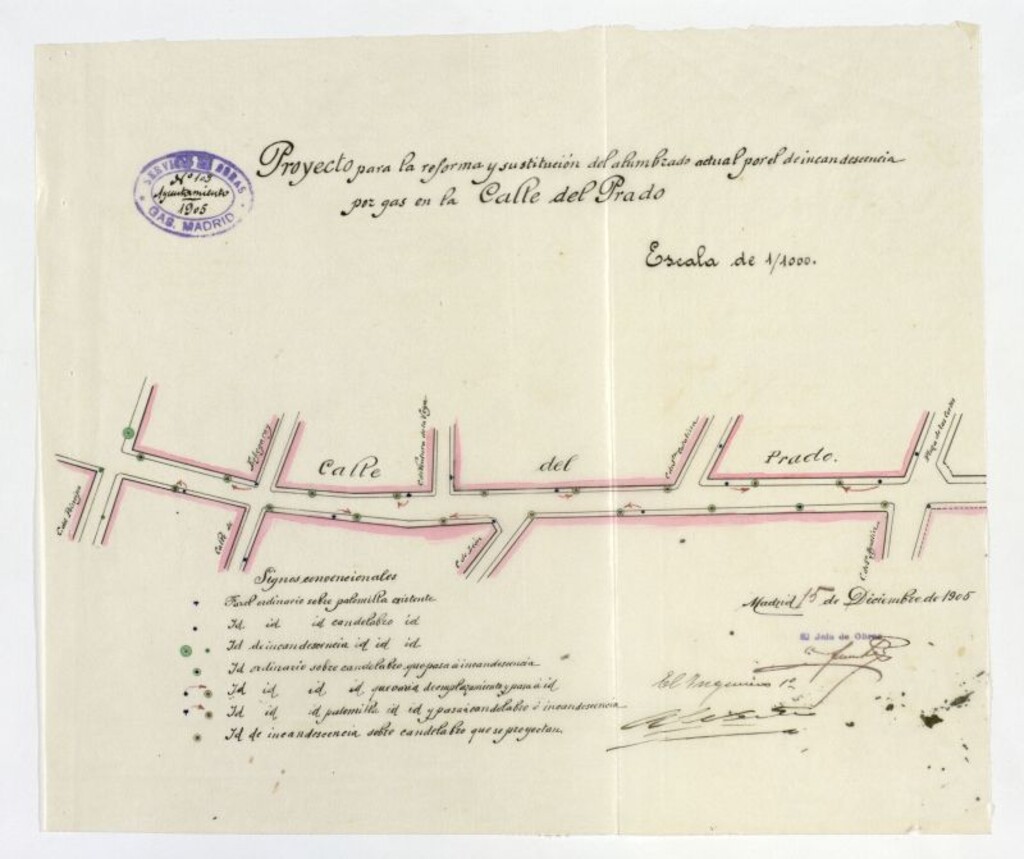 SERVICIO OBRAS
Nº 103
Ayuntamiento
1905
GAS. MADRID
Proyecto para la reforma y sustitución del alumbrado actual por el de incandescencia
por gas en la Calle del Prado
Escala de 1/1000.
Calle del Prado.
Calle de
C. de León
Plaza de las Cortes
Signos convencionales
Farol ordinario sobre palomilla existente
Id id id candelabro id
Id de incandescencia id id id
Id ordinario sobre candelabro, que pasa á incandescencia
Id id id id que varía de emplazamiento y pasa á id
Id id id palomilla id id y pasa á candelabro é incandescencia
Id de incandescencia sobre candelabro que se proyectan.
Madrid 15 de Diciembre de 1905
El Jefe de Obras
El Ingeniero 1º